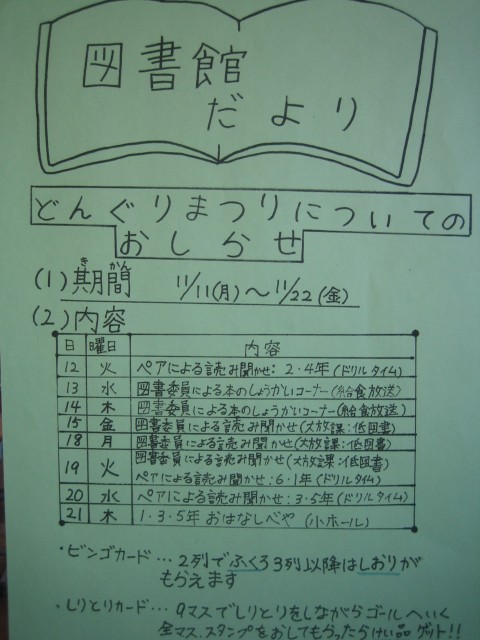 図書館
だより
どんぐりまつりについての
おしらせ
(1) 期間 きかん 11/11(月)〜11/22(金)
(2) 内容
日 曜日 内容
12 火 ペアによる読み聞かせ:2・4年(ドリルタイム)
13 水 図書委員による本のしょうかいコーナー(給食放送)
14 木 図書委員による本のしょうかいコーナー(給食放送)
15 金 図書委員による読み聞かせ(大放課:低図書)
18 月 図書委員による読み聞かせ(大放課:低図書)
19 火 図書委員による読み聞かせ(大放課:低図書)
ペアによる読み聞かせ:6・1年(ドリルタイム)
20 水 ペアによる読み聞かせ:3・5年(ドリルタイム)
21 木 1・3・5年 おはなしべや (小ホール)
・ビンゴカード…2列でふくろ3列以降はしおりが
もらえます
・しりとりカード…9マスでしりとりをしながらゴールへいく
全マス、スタンプをおしてもらったらけい品ゲット!!